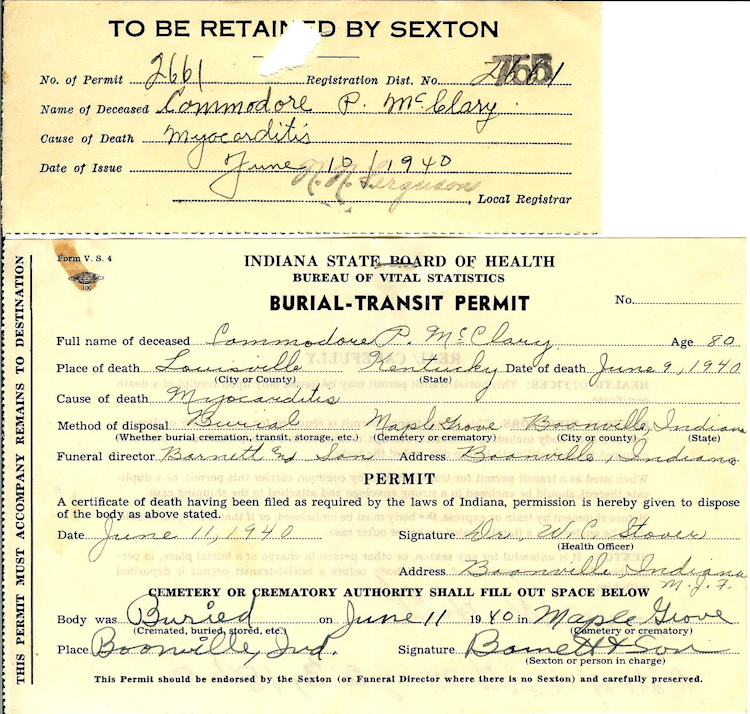 TO BE RETAINED BY SEXTON
No. of Permit 2661 Registration Dist. No. 755
Name of Deceased Commodore P. McClary
Cause of Death Myocarditis
Date of Issue June 10, 1940
N. N. Ferguson
, Local Registrar
Form V. S. 4
INDIANA STATE BOARD OF HEALTH
BUREAU OF VITAL STATISTICS
BURIAL-TRANSIT PERMIT
No.
Full name of deceased Commodore P. McClary Age 80
Place of death Louisville Kentucky Date of death June 9, 1940
(City or County) (State)
Cause of death Myocarditis
Method of disposal Burial Maple Grove Boonville, Indiana
(Whether burial cremation, transit, storage, etc.) (Cemetery or crematory) (City or county) (State)
Funeral director Barnett & Son Address Boonville, Indiana
PERMIT
A certificate of death having been filed as required by the laws of Indiana, permission is hereby given to dispose
of the body as above stated.
Date June 11, 1940 Signature Dr. W. C. Stover
(Health Officer)
Address Boonville, Indiana
M. J. F.
CEMETERY OR CREMATORY AUTHORITY SHALL FILL OUT SPACE BELOW
Body was Buried on June 11 1940 in Maple Grove
(Cremated, buried, stored, etc.) (Cemetery or crematory)
Place Boonville, Ind. Signature Barnett & Son
(Sexton or person in charge)
This Permit should be endorsed by the Sexton (or Funeral Director where there is no Sexton) and carefully preserved.
THIS PERMIT MUST ACCOMPANY REMAINS TO DESTINATION